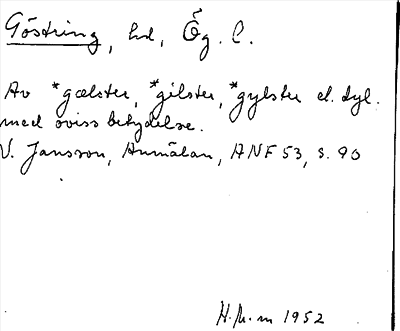 Göstring, hd, Ög. l.
Av *gælster, *gilster, *gylster el. dyl.
med oviss betydelse.
V. Jansson, Anmälan, ANF 53, s. 90
H.M-m 1952